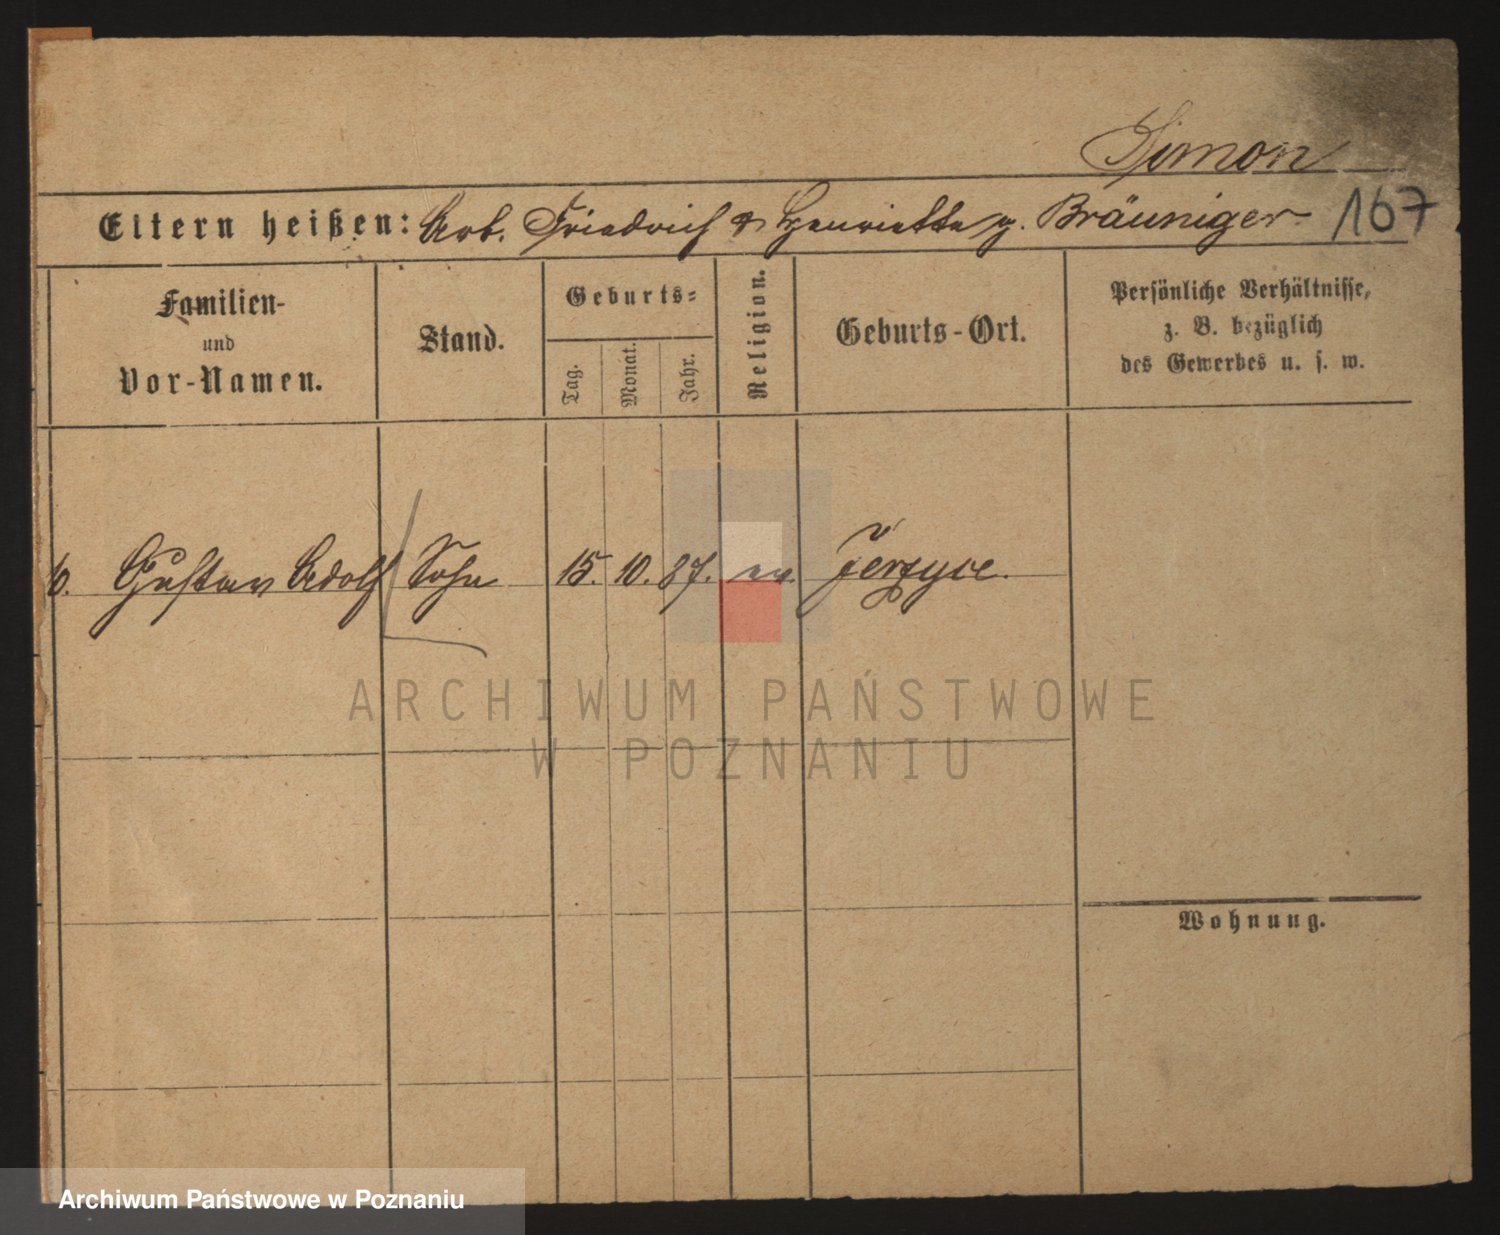 Simon
Eltern heißen: Arb. Friedrich & Henriette g. Bräuniger 167
Familien-
und
Vor-Namen.
Stand.
Geburts-
Tag.
Monat.
Jahr.
Religion.
Geburts-Ort.
Persönliche Verhältnisse,
z. B. bezüglich
des Gewerbes u. s. w.
6. Gustav Adolf Sohn 15. 10. 87. ev. Jerzyce.
ARCHIWUM PAŃSTWOWE
W POZNANIU
Wohnung.
Archiwum Państwowe w Poznaniu